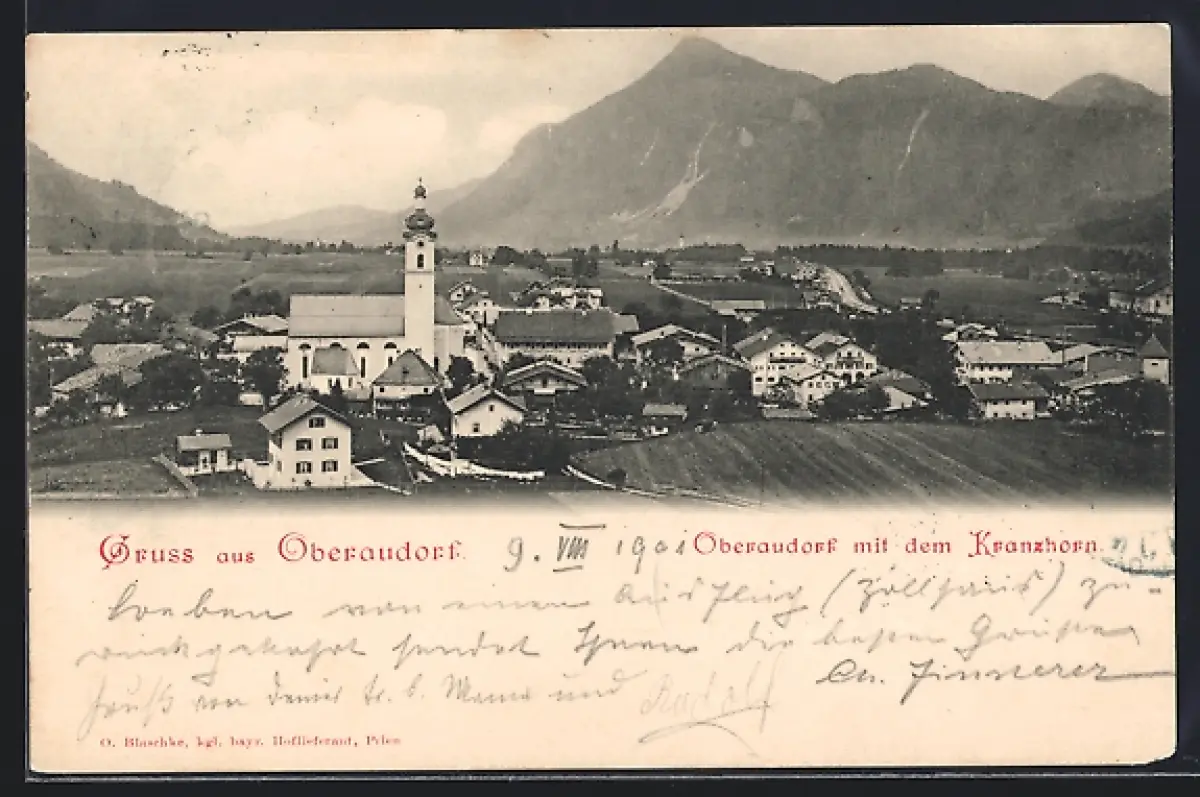 Gruss aus Oberaudorf. 9. VIII 1901 Oberaudorf mit dem Kranzhorn.
Soeben von einem Ausflug (Zollhaus) zu-
rückgekehrt sendet Ihnen die besten Grüße
Gruß von Mama und Rudolf
O. Blaschke, kgl. bayr. Hoflieferant, Prien